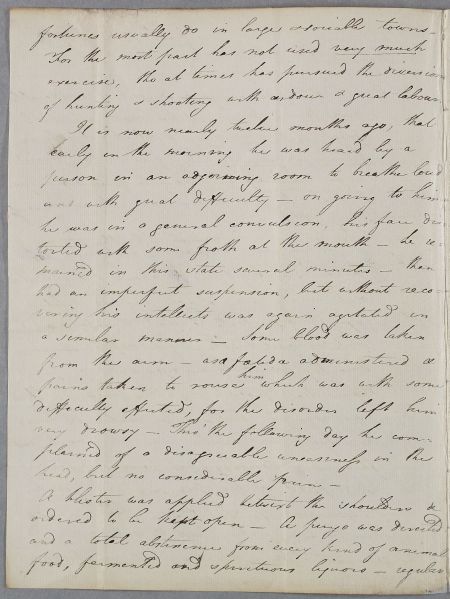 fortunes usually do in large & sociable towns—
For the most part has not used very much
exercise, tho at times has pursued the diversion
of hunting & shooting with ardour & great labour
It is now nearly twelve months ago, that
early in the morning he was heard by a
person in an adjoining room to breathe loud
and with great difficulty — on going to him
he was in a general convulsion, his face dis
torted with some froth at the mouth — he re-
mained in this state several minutes — then
had an imperfect suspension, but without reco-
vering his intellects was again agitated in
a similar manner — Some blood was taken
from the arm — asafœtida administered &
pains taken to rouse him which was with some
difficulty effected, for the disorder left him
very drowsy — Thro' the following day he com-
plained of a disagreeable uneasiness in the
head, but no considerable pain —
A blister was applied betwixt the shoulders &
ordered to be kept open — A purge was directed
and a total abstinence from every kind of animal
food, fermented and spirituous liquors — regular